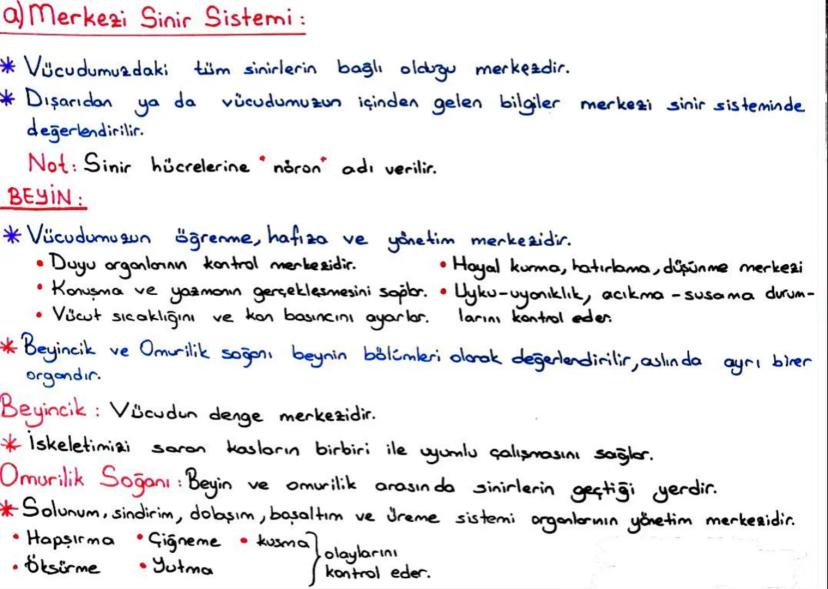 a) Merkezi Sinir Sistemi :
* Vücudumuzdaki tüm sinirlerin bağlı olduğu merkezdir.
* Dışarıdan ya da vücudumuzun içinden gelen bilgiler merkezi sinir sisteminde
değerlendirilir.
Not: Sinir hücrelerine "nöron" adı verilir.
BEYİN :
* Vücudumuzun öğrenme, hafıza ve yönetim merkezidir.
• Duyu organlarının kontrol merkezidir.
• Konuşma ve yazmanın gerçekleşmesini sağlar.
• Vücut sıcaklığını ve kan basıncını ayarlar.
• Hayal kurma, hatırlama, düşünme merkezi
• Uyku-uyanıklık, acıkma - susama durum-
larını kontrol eder.
* Beyincik ve Omurilik soğanı beynin bölümleri olarak değerlendirilir, aslında ayrı birer
organdır.
Beyincik : Vücudun denge merkezidir.
* İskeletimizi saran kasların birbiri ile uyumlu çalışmasını sağlar.
Omurilik Soğanı : Beyin ve omurilik arasında sinirlerin geçtiği yerdir.
* Solunum, sindirim, dolaşım, boşaltım ve üreme sistemi organlarının yönetim merkezidir.
• Hapşırma • Çiğneme • kusma
• Öksürme • Yutma
} olaylarını
kontrol eder.